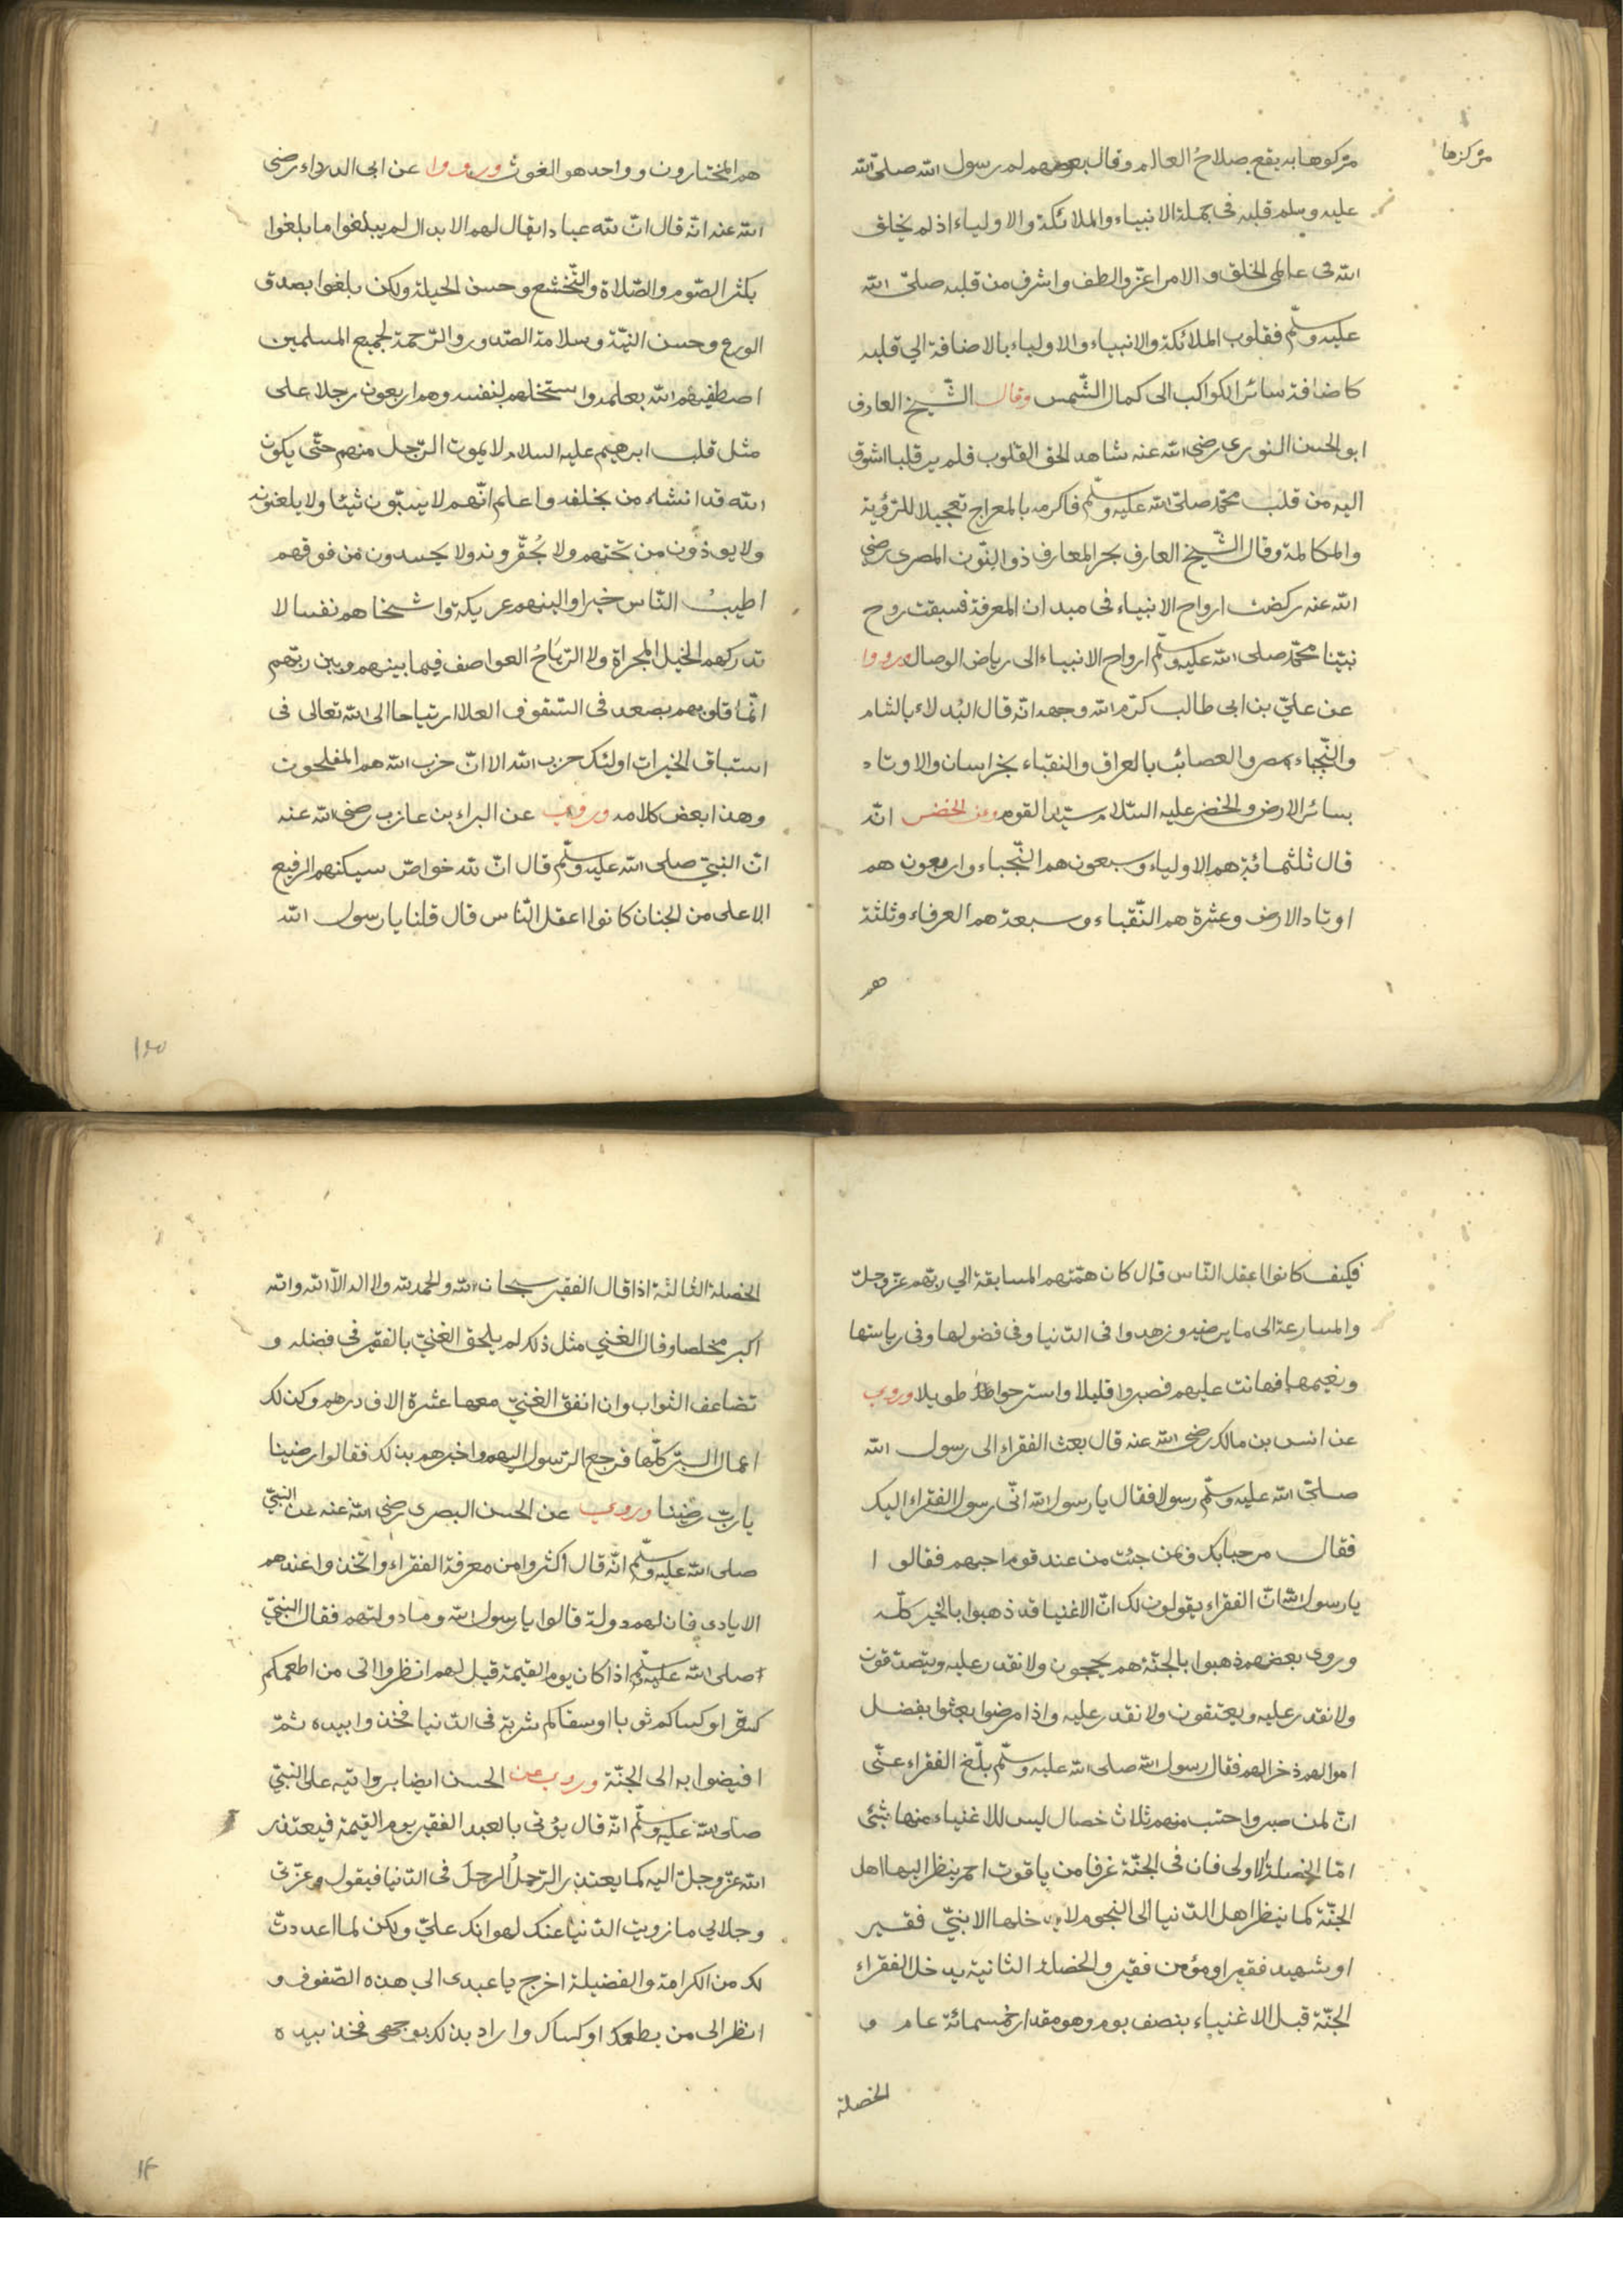 مركزها
مركوها به يقع صلاحُ العالم وقال بعضهم لم رسول الله صلى الله
عليه وسلم قلبه في جملة الانبياء والملائكة والاولياء اذ لم يخلق
الله في عالمى الخلق والامر اعزّ والطف واشرف من قلبه صلّى الله
عليه وسلّم فقلوب الملائكة والانبياء والاولياء بالاضافة الي قلبه
كاضافة سائر الكواكب الى كمال الشّمس وقال الشّيخ العارف
ابو الحسن النورى رضى الله عنه شاهد الحق القلوب فلم ير قلبا اشوق
اليه من قلب محمّد صلّى الله عليه وسلّم فاكرمه بالمعراج تعجيلا للرّؤية
والمكالمة وقال الشّيخ العارف بحر المعارف ذو النّون المصرى رضى
الله عنه ركضت ارواح الانبياء فى ميدان المعرفة فسبقت روح
نبيّنا محمّد صلى الله عليه وسلّم ارواح الانبياء الى رياض الوصال ورووا
عن علىّ بن ابى طالب كرّم الله وجهه انّه قال البُدلاء بالشام
والنّجباء بمصر والعصائب بالعراق والنقباء بخراسان والاوتاد
بسائر الارض والخضر عليه السّلام سيّد القوم وعن الخضر انّه
قال ثلثمائة هم الاولياء وسبعون هم النّجباء واربعون هم
اوتاد الارض وعشرة هم النّقباء وسبعة هم العرفاء وثلثة
هم
هم المختارون وواحد هو الغوث ورووا عن ابى الدرداء رضى
الله عنه انّه قال انّ لله عبادا يقال لهم الابدال لم يبلغوا ما بلغوا
بكثر الصّوم والصّلاة والتّخشع وحسن الحيلة ولكن بلغوا بصدق
الورع وحسن النيّة وسلامة الصّدور والرّحمة لجميع المسلمين
اصطفيهم الله بعلمه واستخلصهم لنفسه وهم اربعون رجلا على
مثل قلب ابرهيم عليه السلام لا يموت الرّجل منهم حتّى يكون
الله قد انشاء من يخلفه واعلم انّهم لا يسبّون شيئا ولا يلعنونه
ولا يوذون من تحتهم ولا يُحقّرونه ولا يحسدون من فوقهم
اطيبُ النّاس خبرا والينهم عريكة واسخاهم نفسا لا
تدركهم الخيل المجراة ولا الرّياحُ العواصف فيما بينهم وبين ربّهم
انّما قلوبهم تصعد فى السّقوف العلا ارتياحا الى الله تعالى فى
استباق الخيرات اولئك حزب الله الا انّ حزب الله هم المفلحون
وهذا بعض كلامه وروى عن البراء بن عازب رضى الله عنه
انّ النبىّ صلى الله عليه وسلّم قال انّ لله خواصّ سيكنهم الرفيع
الاعلى من الجنان كانوا اعقل النّاس قال قلنا يا رسول الله
فكيف كانوا اعقل النّاس قال كان همّتهم المسابقة الي ربّهم عزّ وجلّ
والمسارعة الى ما يرضيه وزهدوا فى الدّنيا وفى فضولها وفى رياستها
ونعيمها فهانت عليهم فصبروا قليلا واسترحوا طويلا وروى
عن انس بن مالك رضى الله عنه قال بعث الفقراء الى رسول الله
صلّى الله عليه وسلّم رسولا فقال يا رسول الله انّى رسول الفقراء اليك
فقال مرحبا بك وبمن جئت من عند قوم احبهم فقالوا
يا رسول الله انّ الفقراء يقولون لك انّ الاغنيا قد ذهبوا بالخير كلّه
وروى بعضهم ذهبوا بالجنّة هم يحجون ولا نقدر عليه ويتصدقون
ولا نقدر عليه ويعتقون ولا نقدر عليه واذا مرضوا بعثوا بفضل
اموالهم ذخرا لهم فقال رسول الله صلى الله عليه وسلّم بلّغ الفقراء عنّى
انّ لمن صبر واحتسب منهم ثلاث خصال ليس للاغنياء منها شئ
امّا الخصلة الاولى فان فى الجنّة غرفا من ياقوت احمر ينظر اليها اهل
الجنّة كما ينظر اهل الدّنيا الى النجوم لا يدخلها الا نبىّ فقير
او شهيد فقير او مؤمن فقير والخصلة الثانية يدخل الفقراء
الجنّة قبل الاغنياء بنصف يوم وهو مقدار خمسمائة عام و
الخصلة
الخصلة الثالثة اذا قال الفقير سبحان الله والحمد لله ولا اله الاّ الله والله
اكبر مخلصا وقال الغني مثل ذلك لم يلحق الغنىّ بالفقير فى فضله و
تضاعف الثواب وان انفق الغنىّ معها عشرة الاف درهم وكذلك
اعمال البرّ كلّها فرجع الرّسول اليهم واخبرهم بذلك فقالوا رضينا
يا ربّ رضينا وروى عن الحسن البصرى رضى الله عنه عن النبىّ
صلى الله عليه وسلّم انّه قال اكثروا من معرفة الفقراء واتخذوا عندهم
الايادى فان لهم دولة قالوا يا رسول الله وما دولتهم فقال النبىّ
صلى الله عليه وسلّم اذا كان يوم القيمة قيل لهم انظروا الى من اطعمكم
كسرة او كساكم ثوبا او سقاكم شربة فى الدّنيا فخذوا بيده ثمّ
افيضوا به الى الجنّة وروى عن الحسن ايضا بروايته على النبىّ
صلى الله عليه وسلّم انّه قال يؤتى بالعبد الفقير يوم القيمة فيعتذر
الله عزّ وجلّ اليه كما يعتذر الرّجلُ الرجلَ فى الدّنيا فيقول وعزّتى
وجلالي ما زويت الدّنيا عنك لهوانك علىّ ولكن لما اعددتّ
لك من الكرامة والفضيلة اخرج يا عبدى الي هذه الصّفوف و
انظر الى من يطعمك او كساك واراد بذلك بوجهى فخذ بيده
١٤